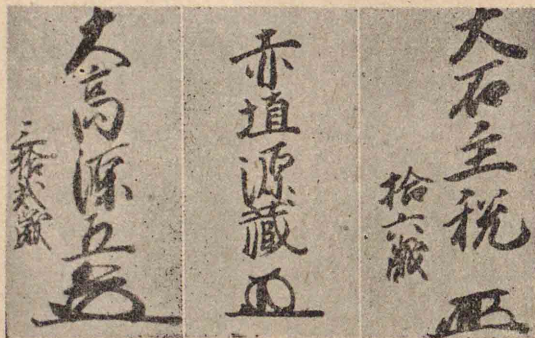 大石主税
拾六歳
赤埴源藏
大高源五
三拾弐歳